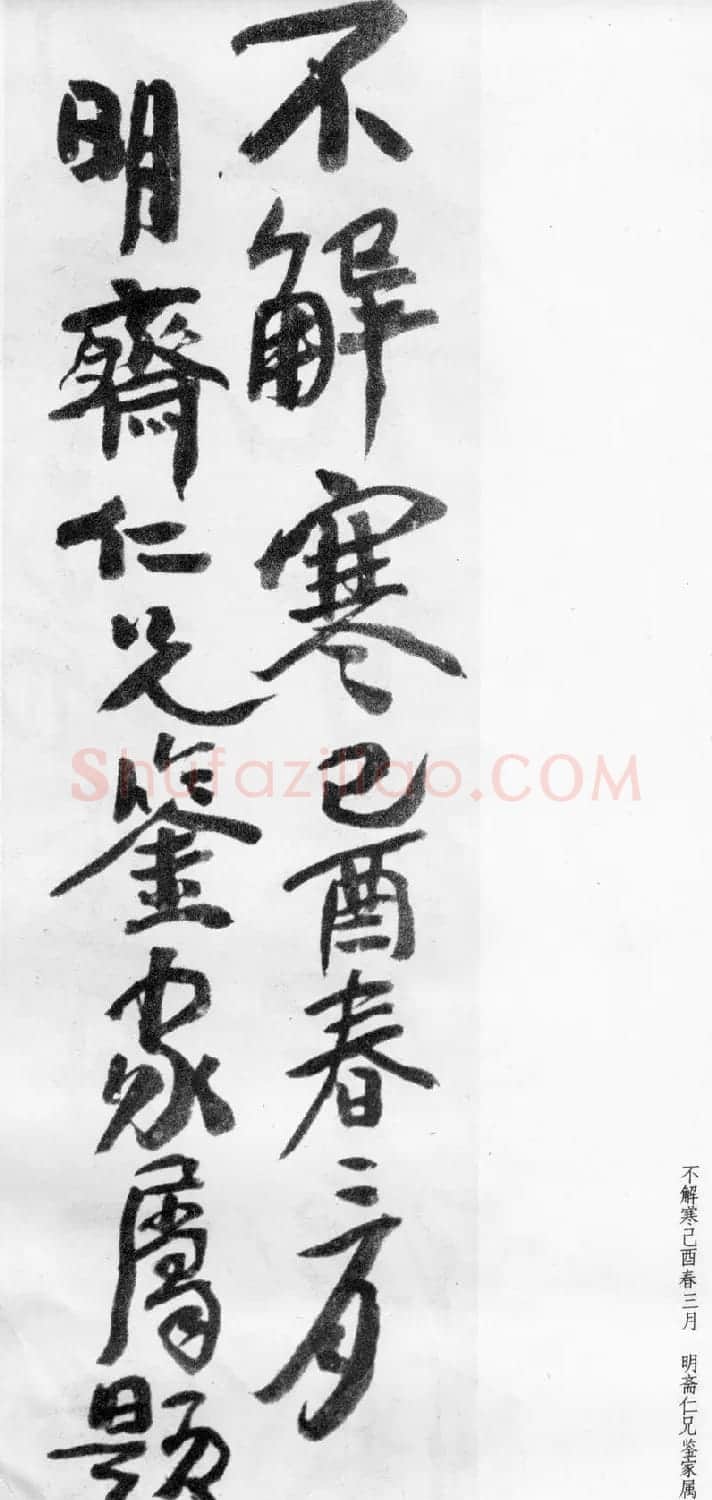 不解寒己酉春三月
明齋仁兄鑒家屬題
不解寒己酉春三月 明斋仁兄鉴家属
Shufaziliao.COM